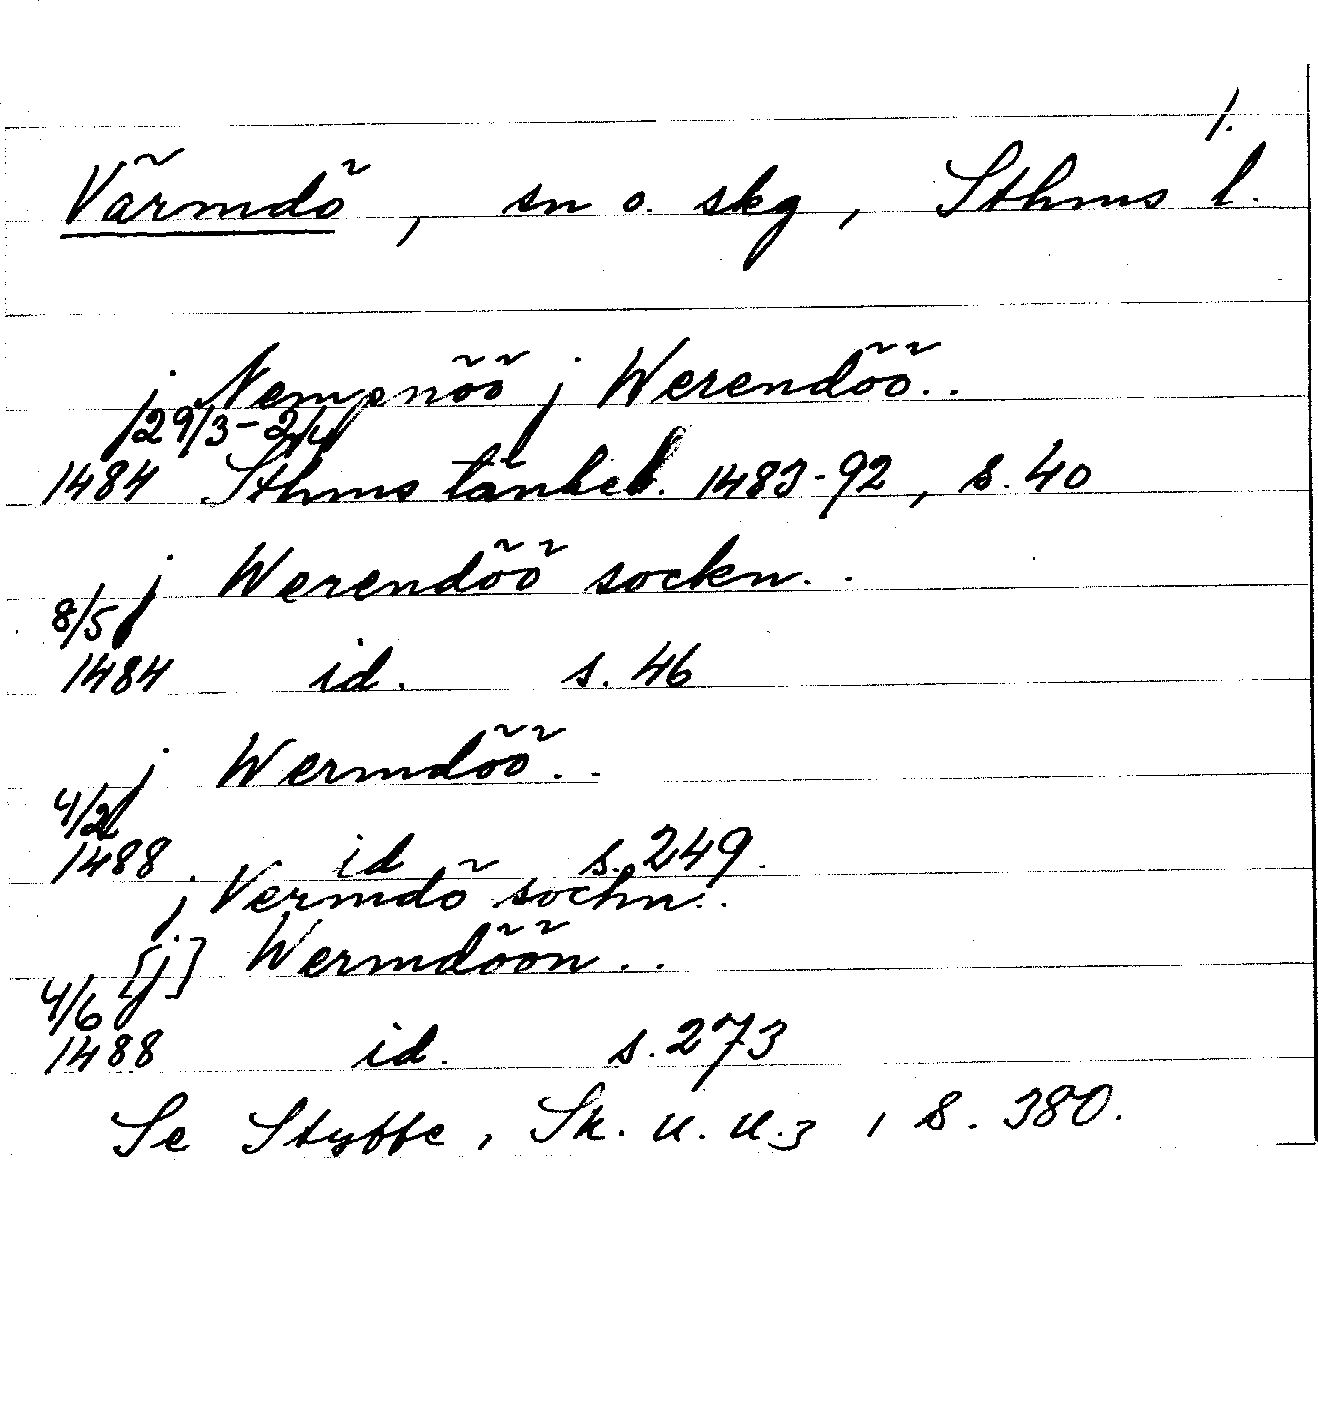 1.
Värmdö, sn o. skg, Sthms l.
j Nempnöö j Werendöö..
29/3-2/4
1484 Sthms tänkeb. 1483-92, s. 40
j Werendöö sockn..
8/5
1484 id. s. 46
j Wermdöö..
4/2
1488. id s. 249.
j Vermdö sochn..
[j] Wermdöön..
4/6
1488 id. s. 273
Se Styffe, Sk. u. u.3, s. 380.